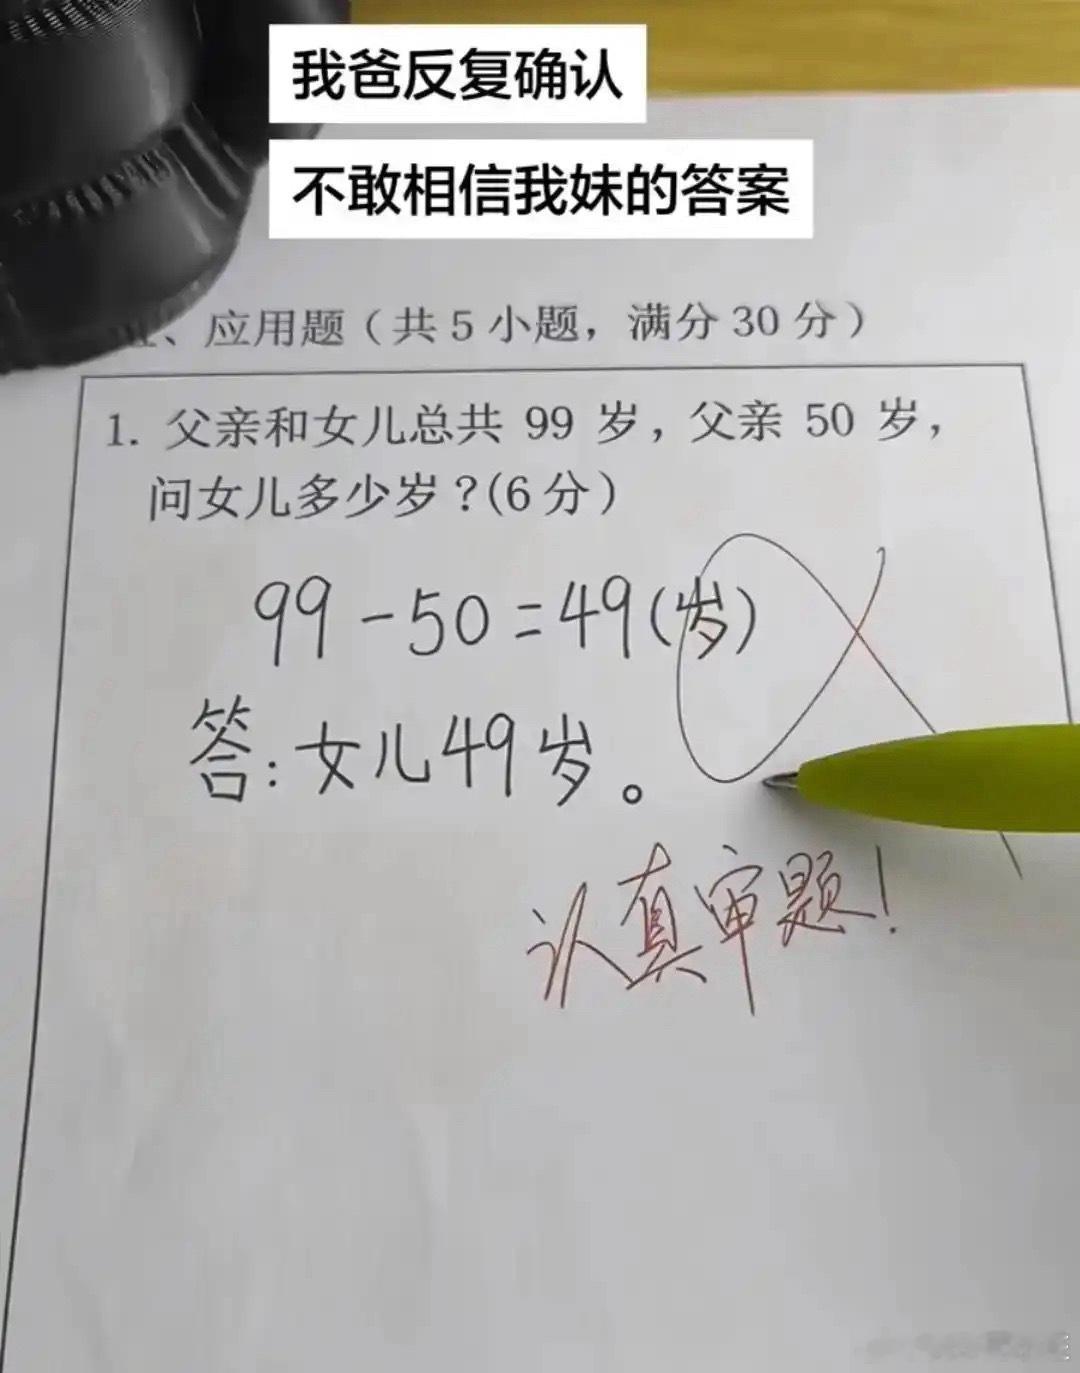 我爸反复确认
不敢相信我妹的答案
、应用题（共5小题，满分30分）
1. 父亲和女儿总共 99 岁，父亲 50 岁，
问女儿多少岁？(6分)
99-50=49(岁)
答:女儿49岁。
认真审题!